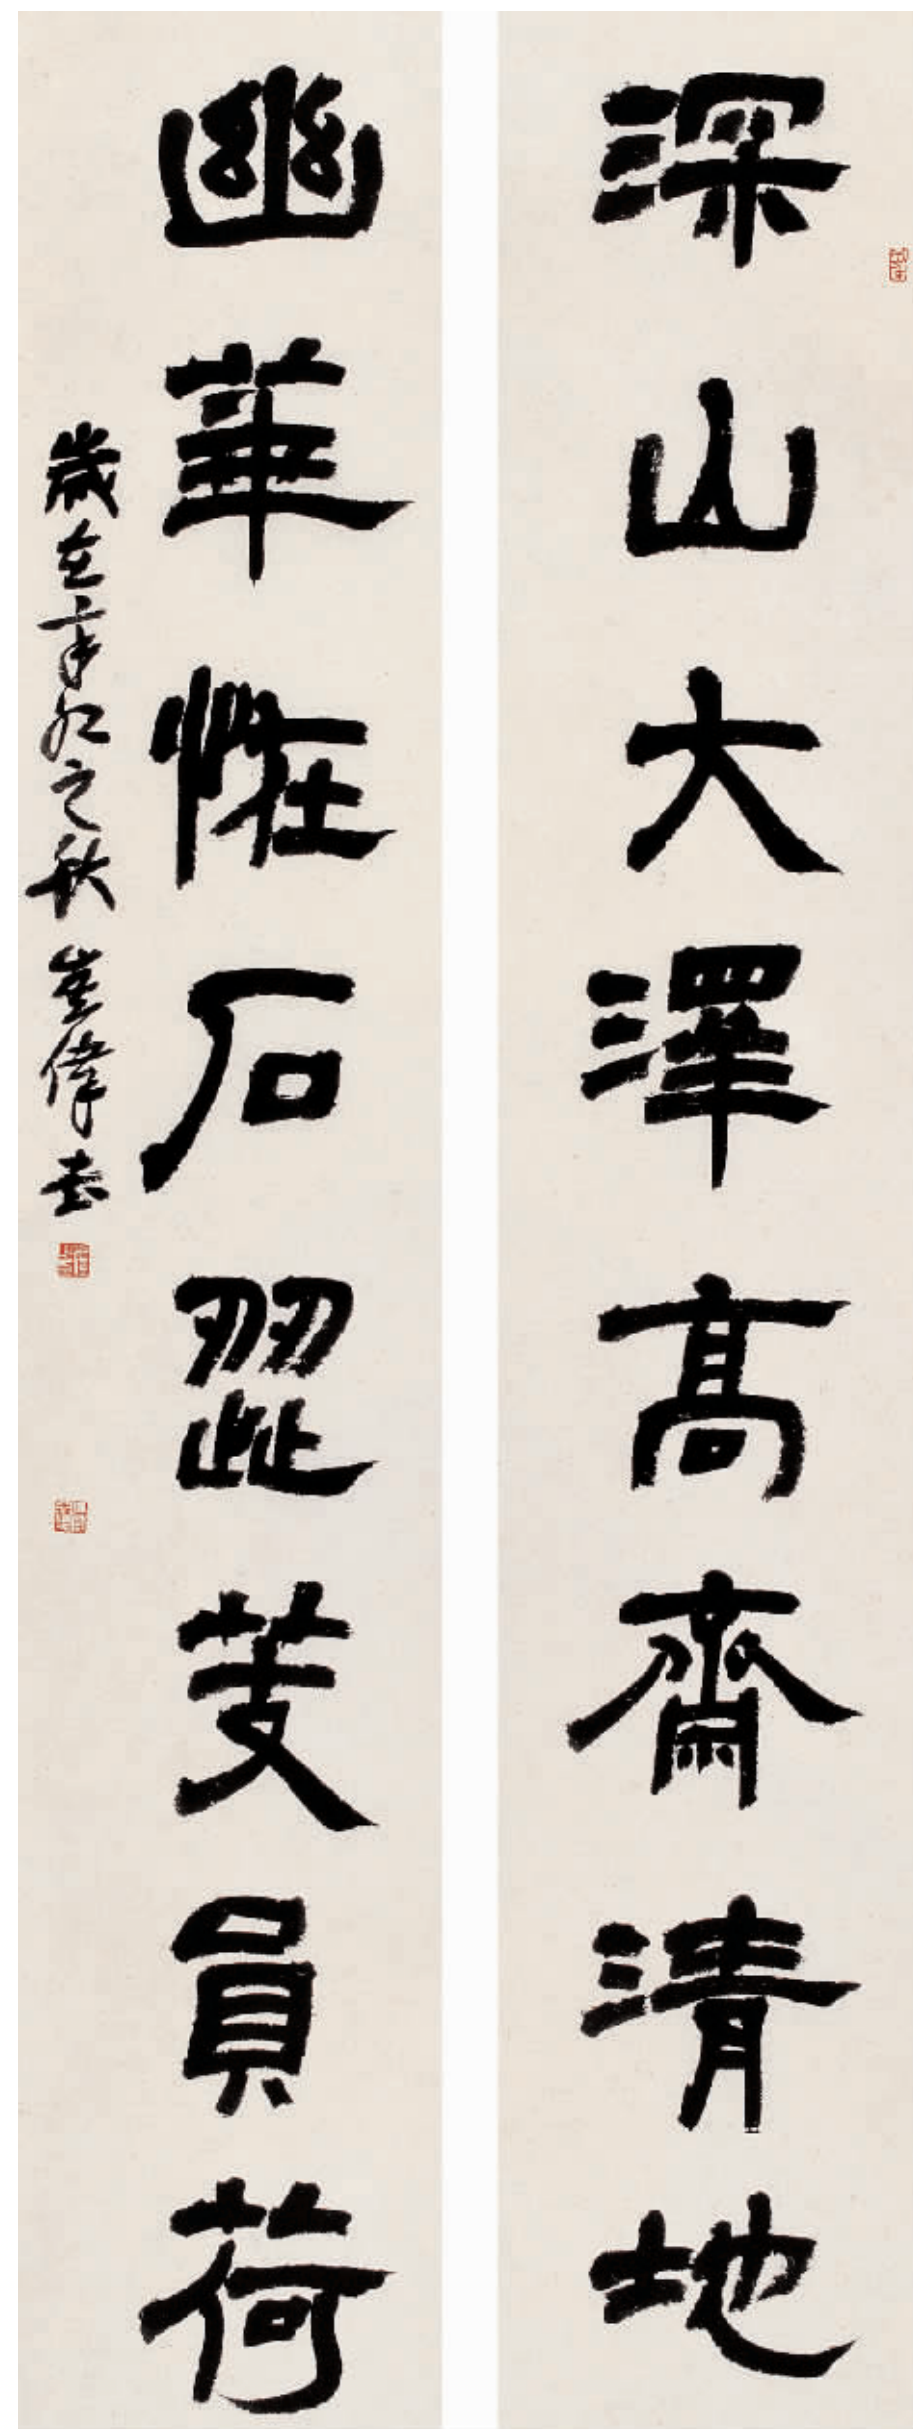 深山大澤高齋清地
幽華恠石澀芰員荷
歲在辛丑之秋崔偉書